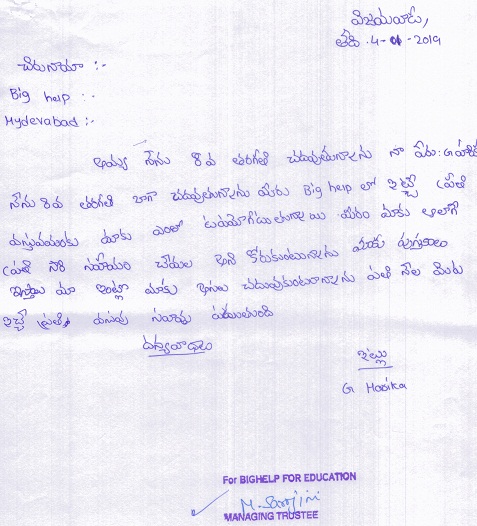 విజయవాడ,
తేది .4-01-2019
చిరునామా :-
Big help :-
Hyderabad :-
అయ్య నేను 8వ తరగతి చదువుతున్నాను నా పేరు: G హారిక
నేను 8వ తరగతి బాగా చదువుతున్నాను మీరు Big help లో ఇచ్చే ప్రతి
వస్తువు మాకు ఎంతో ఉపయోగపడుతున్నాయి మీరు మాకు అలాగే
ప్రతి సారి సహాయం చేయాలి అని కోరుకుంటున్నాను మీరు పుస్తకాలు
ఇస్తే మా ఇంట్లో మాకు చదువుకుంటున్నాను ప్రతి నెల మీరు
ఇచ్చే ప్రతి వస్తువు
దన్యవాదాలు
ఇట్లు
G Harika
For BIGHELP FOR EDUCATION
M. Sarojini
MANAGING TRUSTEE